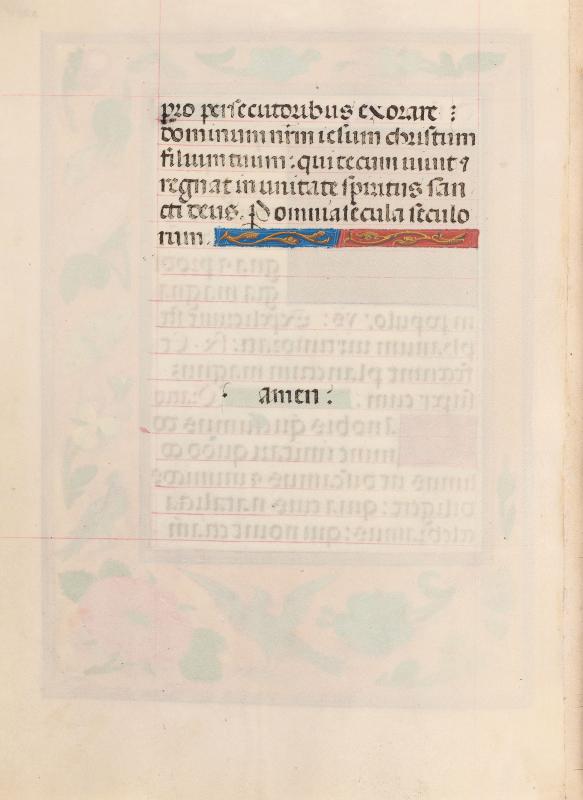 pro persecutoribus exorare :
dominum nrm iesum christum
filium tuum : qui tecum uiuit ⁊
regnat in unitate spiritus san
cti deus. P omnia secula seculo
rum .
: amen :